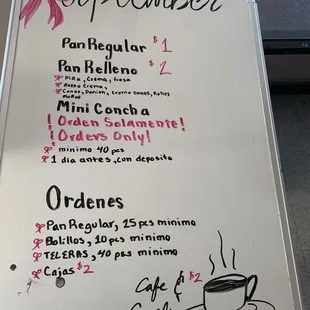 September
Pan Regular $1
Pan Relleno $2
Piña, Crema, fresa
Queso Crema,
Conos, Danish, Cuerno Dones, Rolles
Mini Concha
¡Orden Solamente!
¡Orders Only!
minimo 40 pcs
1 dia antes, con deposito
Ordenes
Pan Regular, 25 pcs minimo
Bolillos, 10 pcs minimo
TELERAS, 40 pcs minimo
Cajas $2
Cafe $2